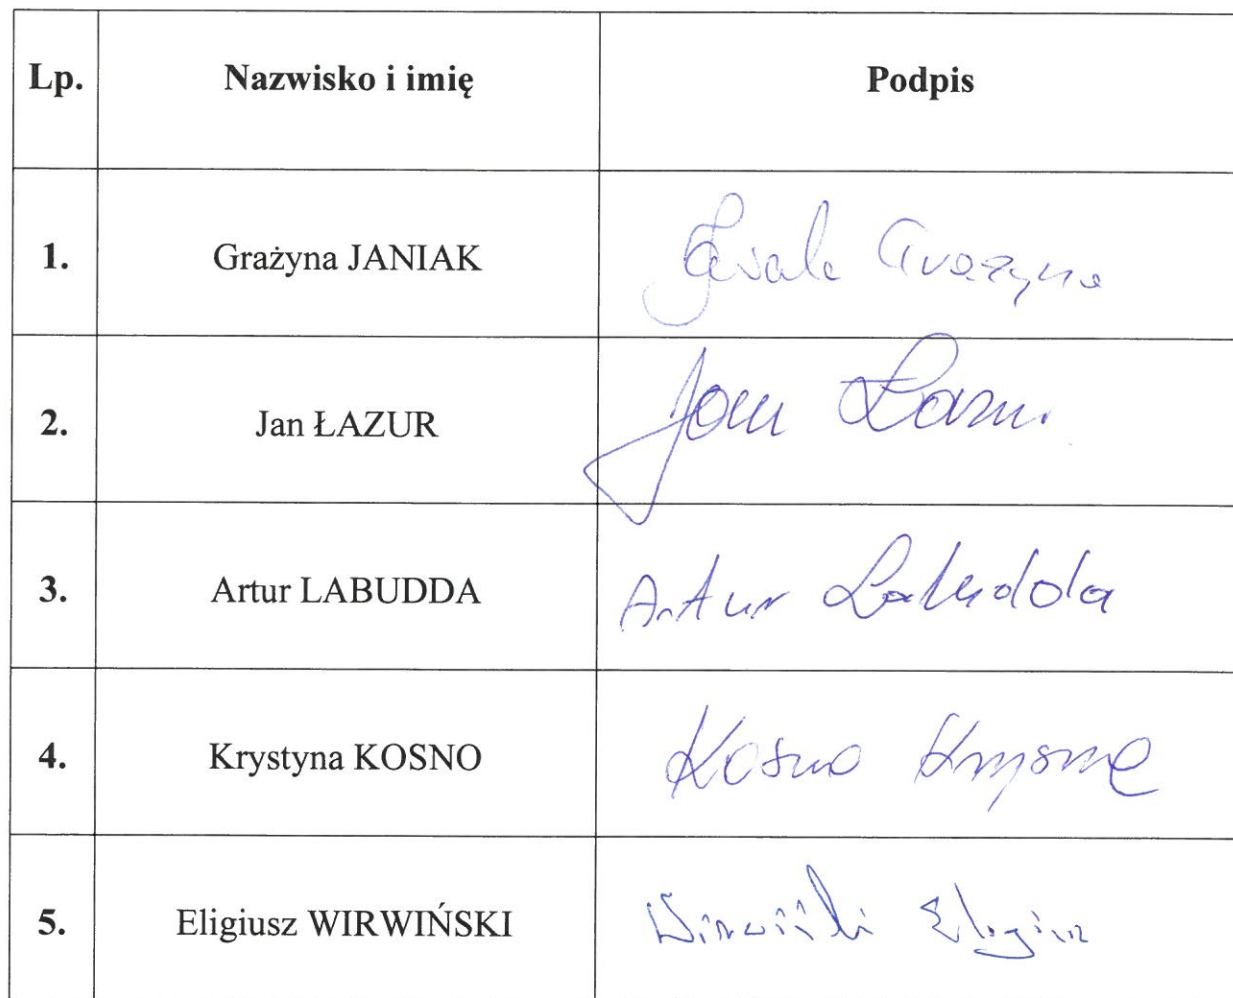 Lp. Nazwisko i imię Podpis
1. Grażyna JANIAK Grażyna
2. Jan ŁAZUR Jan Łazur
3. Artur LABUDDA Artur Labudda
4. Krystyna KOSNO Kosno Krystyna
5. Eligiusz WIRWIŃSKI Wirwiński Eligiusz